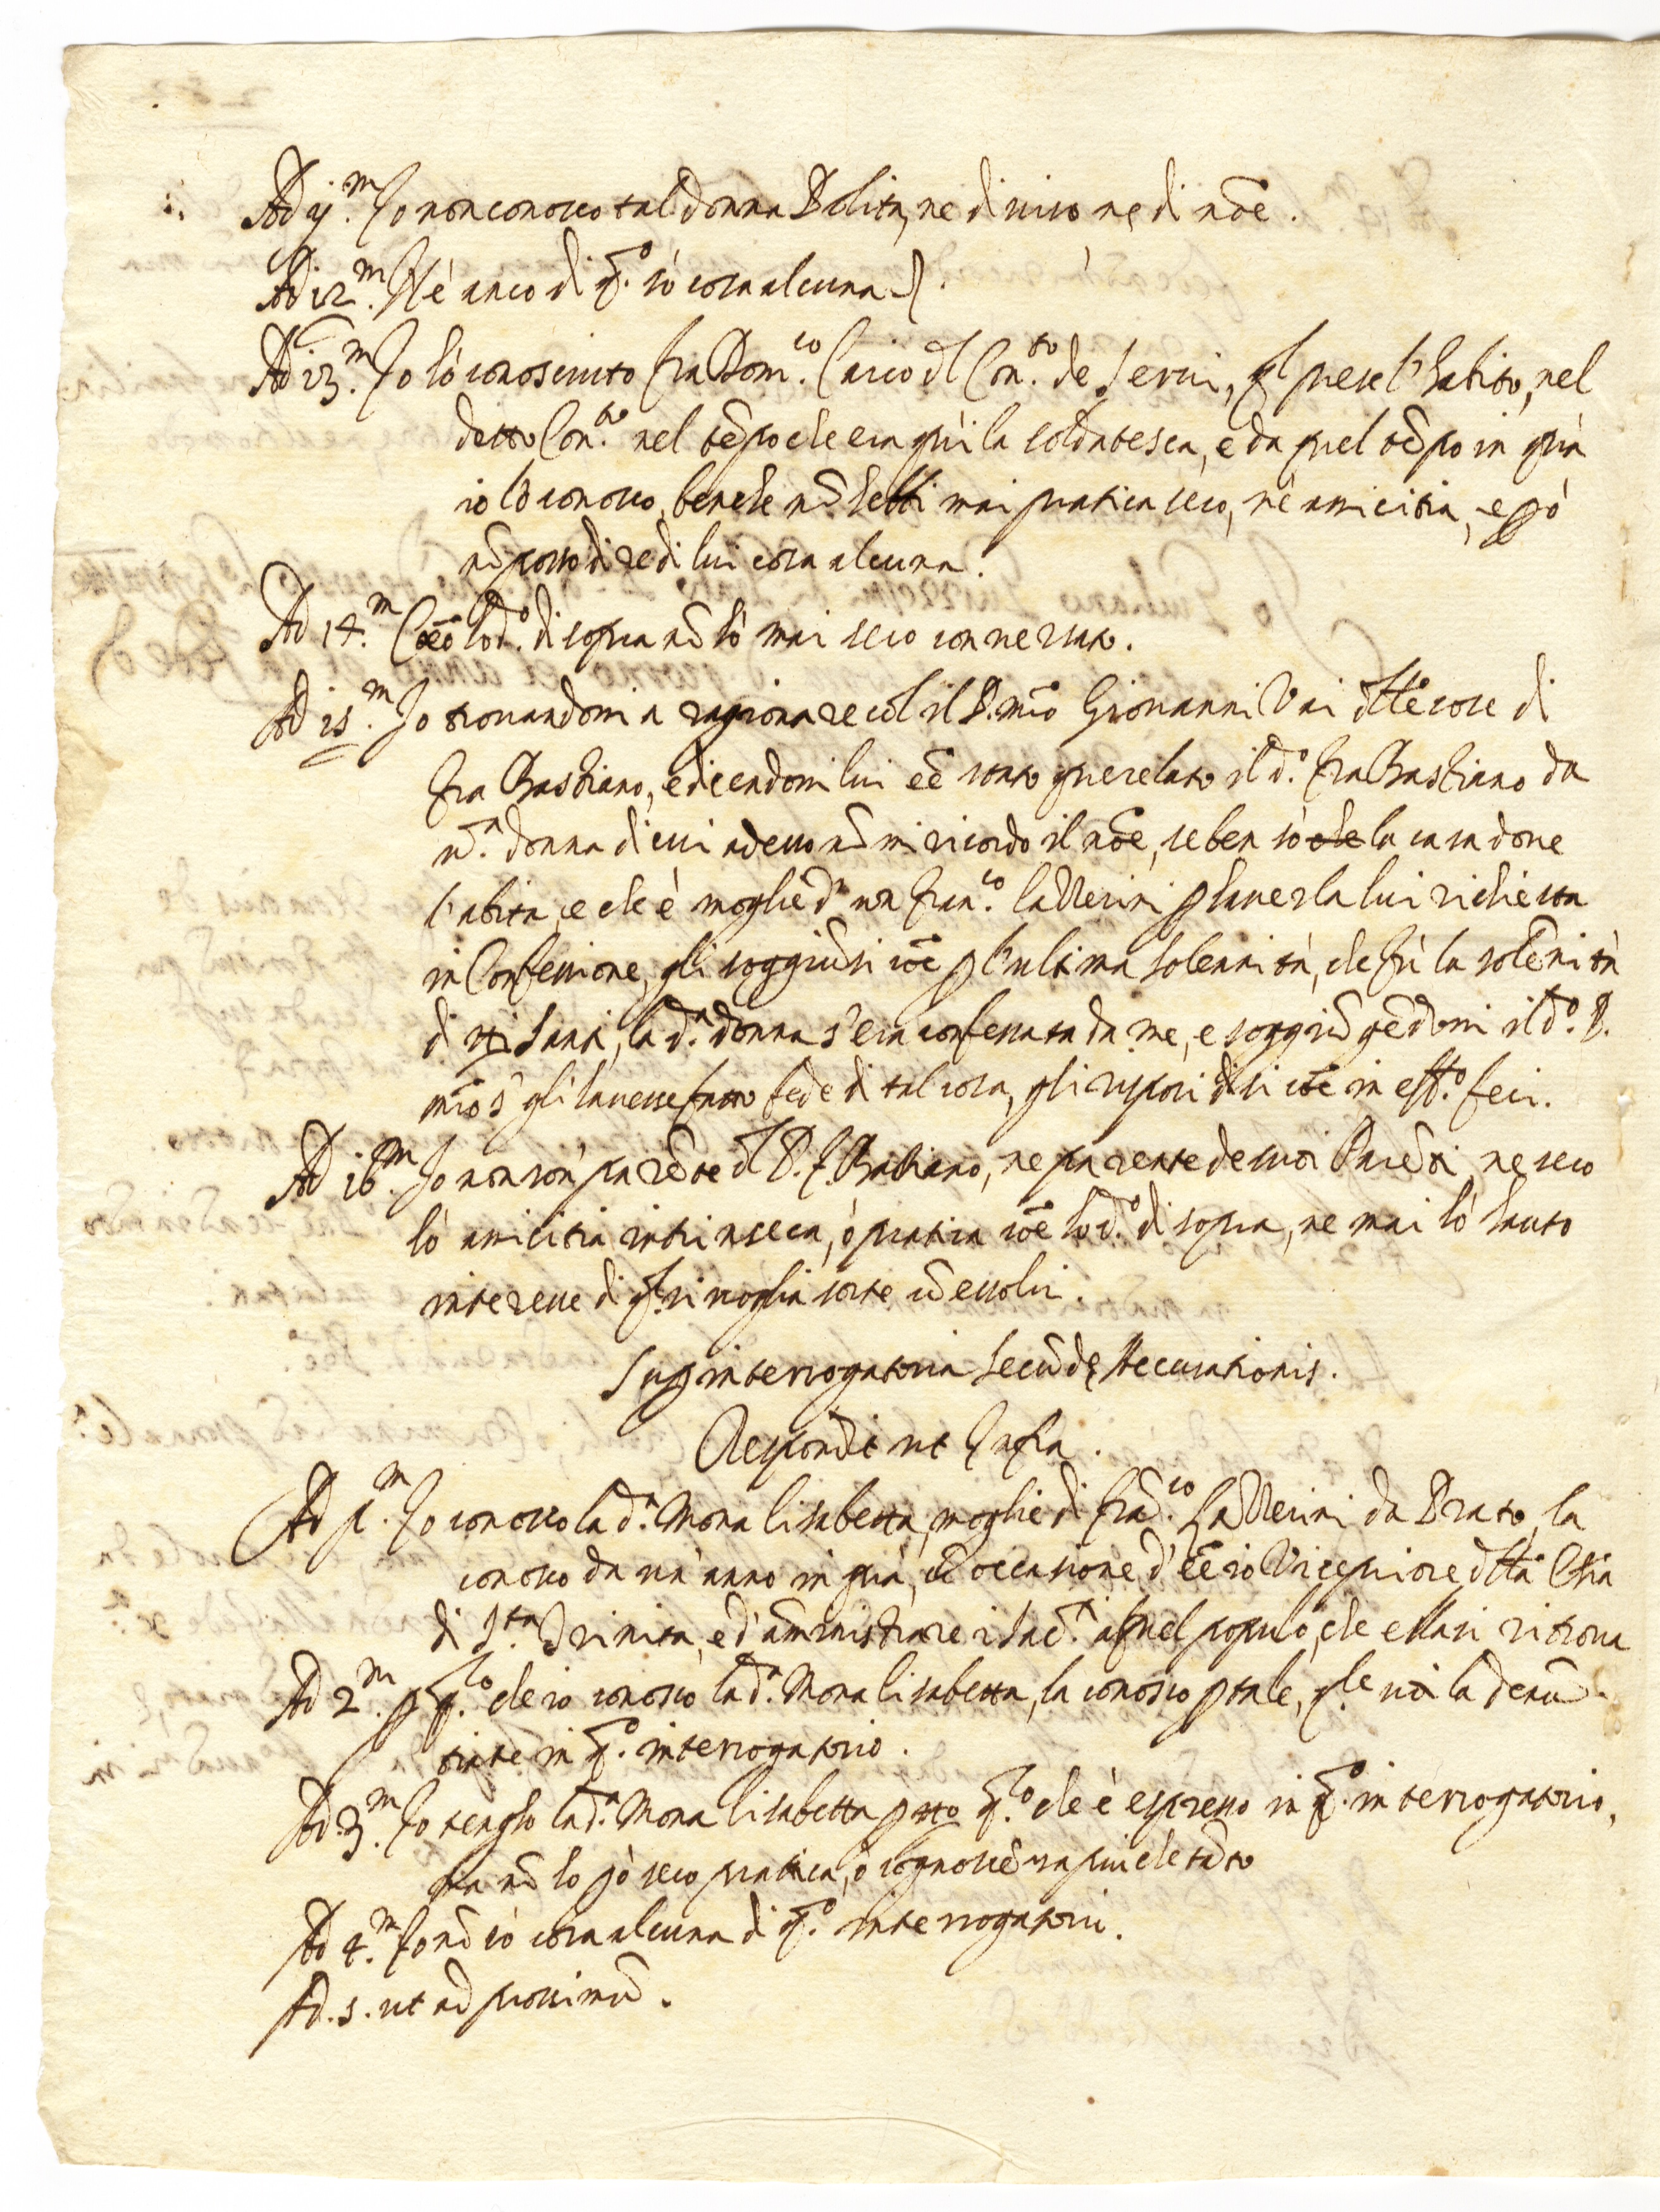 Ad ij.m Io non conosco tal donna Polita, ne di viso ne di nõe.
Ad 12.m Nè anco di q.o sò cosa alcuna.
Ad 13.m Io hò conosciuto fra Dom.co laico dl Con.to de Servi, ql prese l'habito, nel
detto Con.to nel tẽpo che era quì la soldatesca, e da quel tẽpo in quà
io lo conosco, benche nõ hebbi mai pratica seco, nè amicitia, e pò
nõ posso dire di lui cosa alcuna.
Ad 14.m Coẽ hò d.o di sopra nõ hò mai seco conversato.
Ad 15.m Io trovandomi a ragionare col il P. mio Giovanni Vai dlle cose di
fra Bastiano, e dicendomi lui eẽ stato querelato il d.o fra Bastiano da
n.a donna di cui adesso nõ mi ricordo il nõe, se ben sò che la casa dove
l'abita, e che è moglie d'un fran.co ladderini p haverla lui richiesta
in Confessione, gli soggiũsi coẽ p l'ultima solennità, che fù la solẽnità
di tti Santi, la d.a donna s'era confessata da me, e soggiũgẽdomi il d.o P.
mio s' gli havesse fatto fede di tal cosa, gli risposi di si coẽ in eff.o feci.
Ad 16.m Io non son parẽte dl P. f. Bastiano, ne parente de suoi Parẽti, ne seco
hò amicitia intrinseca, ò pratica coẽ hò d.o di sopra, ne mai hò hauto
interesse di q.si voglia sorte cõ essolui.
Sup interrogatoria secũdę Recusationis.
Respondit ut Infra.
Ad p.m Io conosco la d.a Mona lisabetta, moglie di frã.co ladderini da Prato, la
conosco da un'anno in quà, cõ occasione d'eẽ io Vicepriore dlla Chia
di S.ta Trinita, e d'amministrare i sac.ti a quel popolo, che ella si ritrova
Ad 2.m p q.lo che io conosco la d.a Mona lisabetta, la conosco p tale, q.le vi la denũ
tiate in q.o interrogatorio.
Ad 3.m Io tengho la d.a Mona lisabetta p tto q.lo che è espresso in q.o interrogatorio,
ma nõ ho pò seco pratica, ò cognoscẽza piu che tãto
Ad 4.m Io nõ sò cosa alcuna di q.o interrogatorii.
Ad .5. ut ad proximũ.